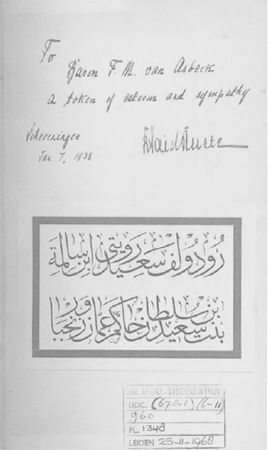 To
Baron F. M. van Asbeck
a token of esteem and sympathy
Scheveningen
Jan. 7, 1938
R Said-Ruete
رودولف سعيد رويتى ابن سالمة
بنت سعيد بن سلطان حاكم عمان وزنجبار
UDC.
960
PL. 1348
LEIDEN 25-11-1968